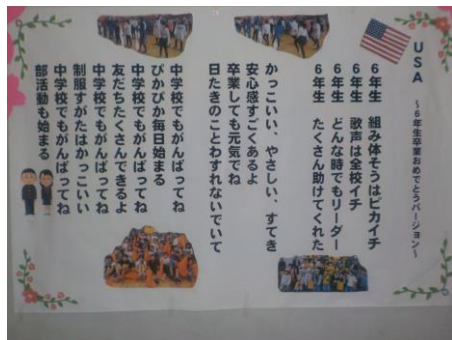 USA ～6年生卒業おめでとうバージョン～
6年生 組み体そうはピカイチ
6年生 歌声は全校イチ
6年生 どんな時でもリーダー
6年生 たくさん助けてくれた
かっこいい、やさしい、すてき
安心感すごくあるよ
卒業しても元気でね
日たきのことわすれないでいて
中学校でもがんばってね
ぴかぴか毎日始まる
中学校でもがんばってね
友だちたくさんできるよ
中学校でもがんばってね
制服すがたはかっこいい
中学校でもがんばってね
部活動も始まる